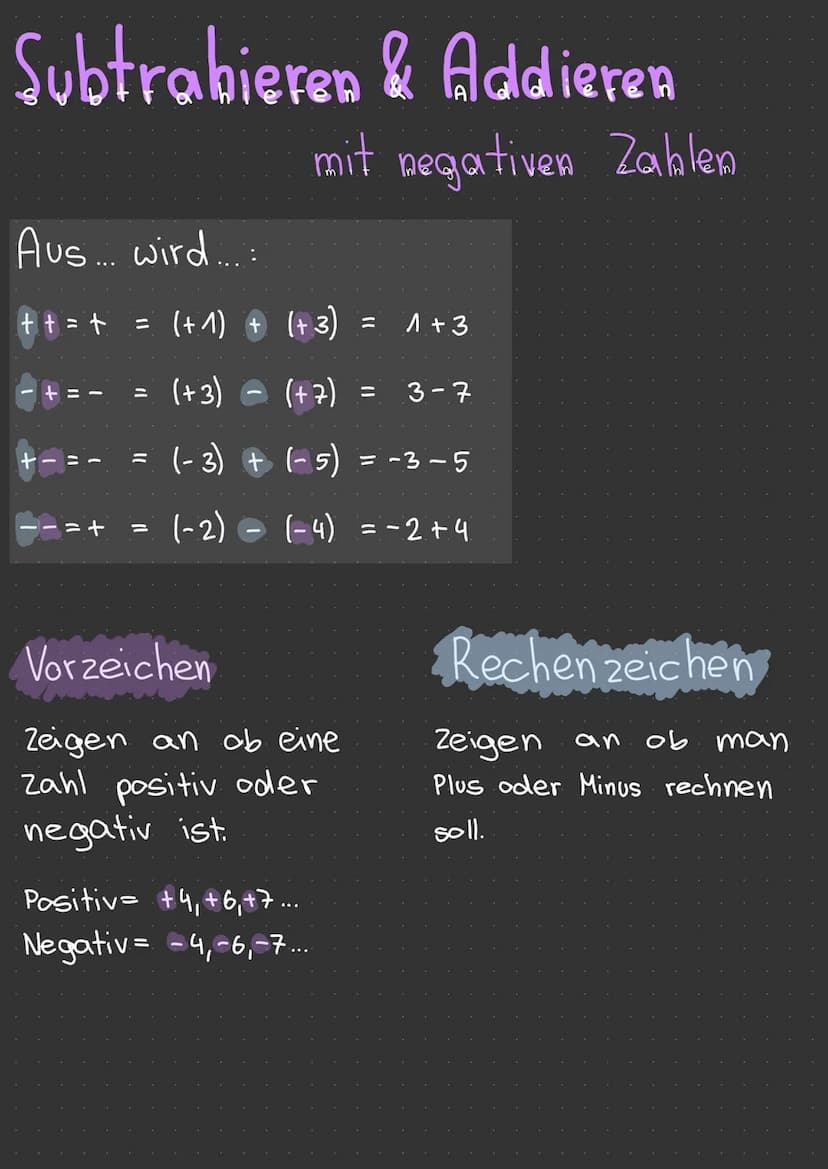 Subtrahieren & Addieren
mit negativen Zahlen
Aus... wird...:
++=+ = (+1) + (+3) = 1+3
-+=- = (+3) - (+7) = 3-7
+-=- = (-3) + (-5) = -3-5
--=+ = (-2) - (-4) = -2+4
Vorzeichen
Zeigen an ob eine
Zahl positiv oder
negativ ist.
Positiv= +4,+6,+7...
Negativ= -4,-6,-7...
Rechenzeichen
Zeigen an ob man
Plus oder Minus rechnen
soll.